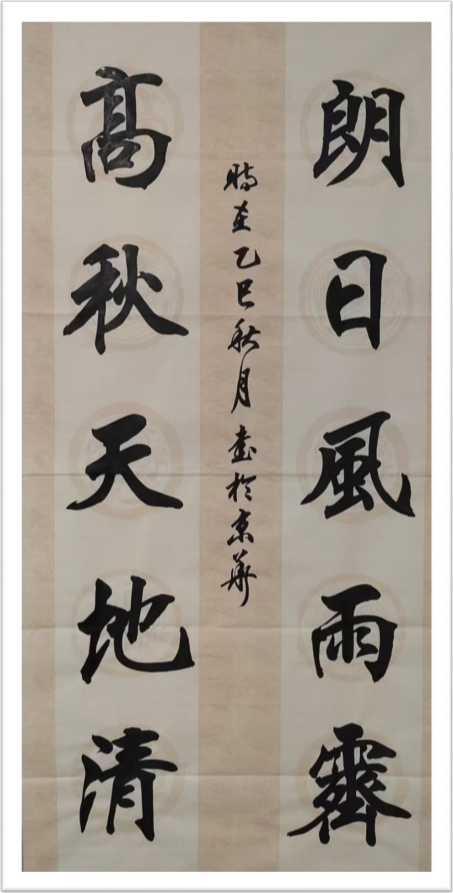 朗日風雨霽
髙秋天地清
時在乙巳秋月書於京華